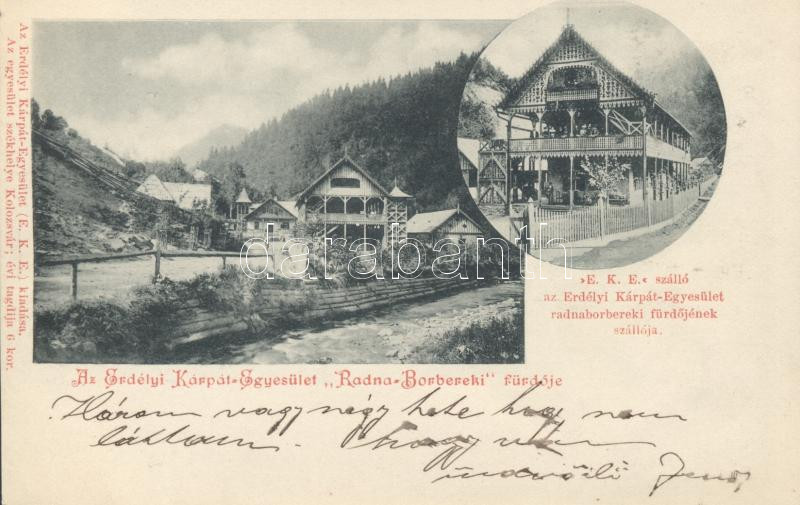 Az Erdélyi Kárpát-Egyesület (E. K. E.) kiadása.
Az egyesület székhelye Kolozsvár; évi tagdíja 6 kor.
darabanth
»E. K. E.« szálló
az Erdélyi Kárpát-Egyesület
radnaborbereki fürdőjének
szállója.
Az Erdélyi Kárpát-Egyesület „Radna-Borbereki" fürdője
Három vagy négy hete hogy nem
láttam. Nagyon
üdvözli Jenő